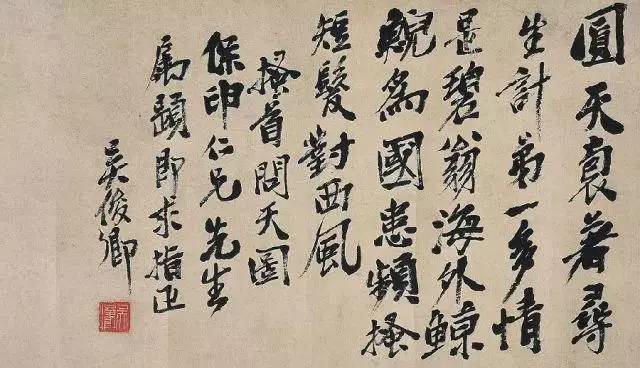 圓天裏著尋
生計第一多情
是碧翁海外鯨
鯢為國患頻搔
短髮對西風
搔首問天圖
保印仁兄先生
屬題即求指正
吳俊卿